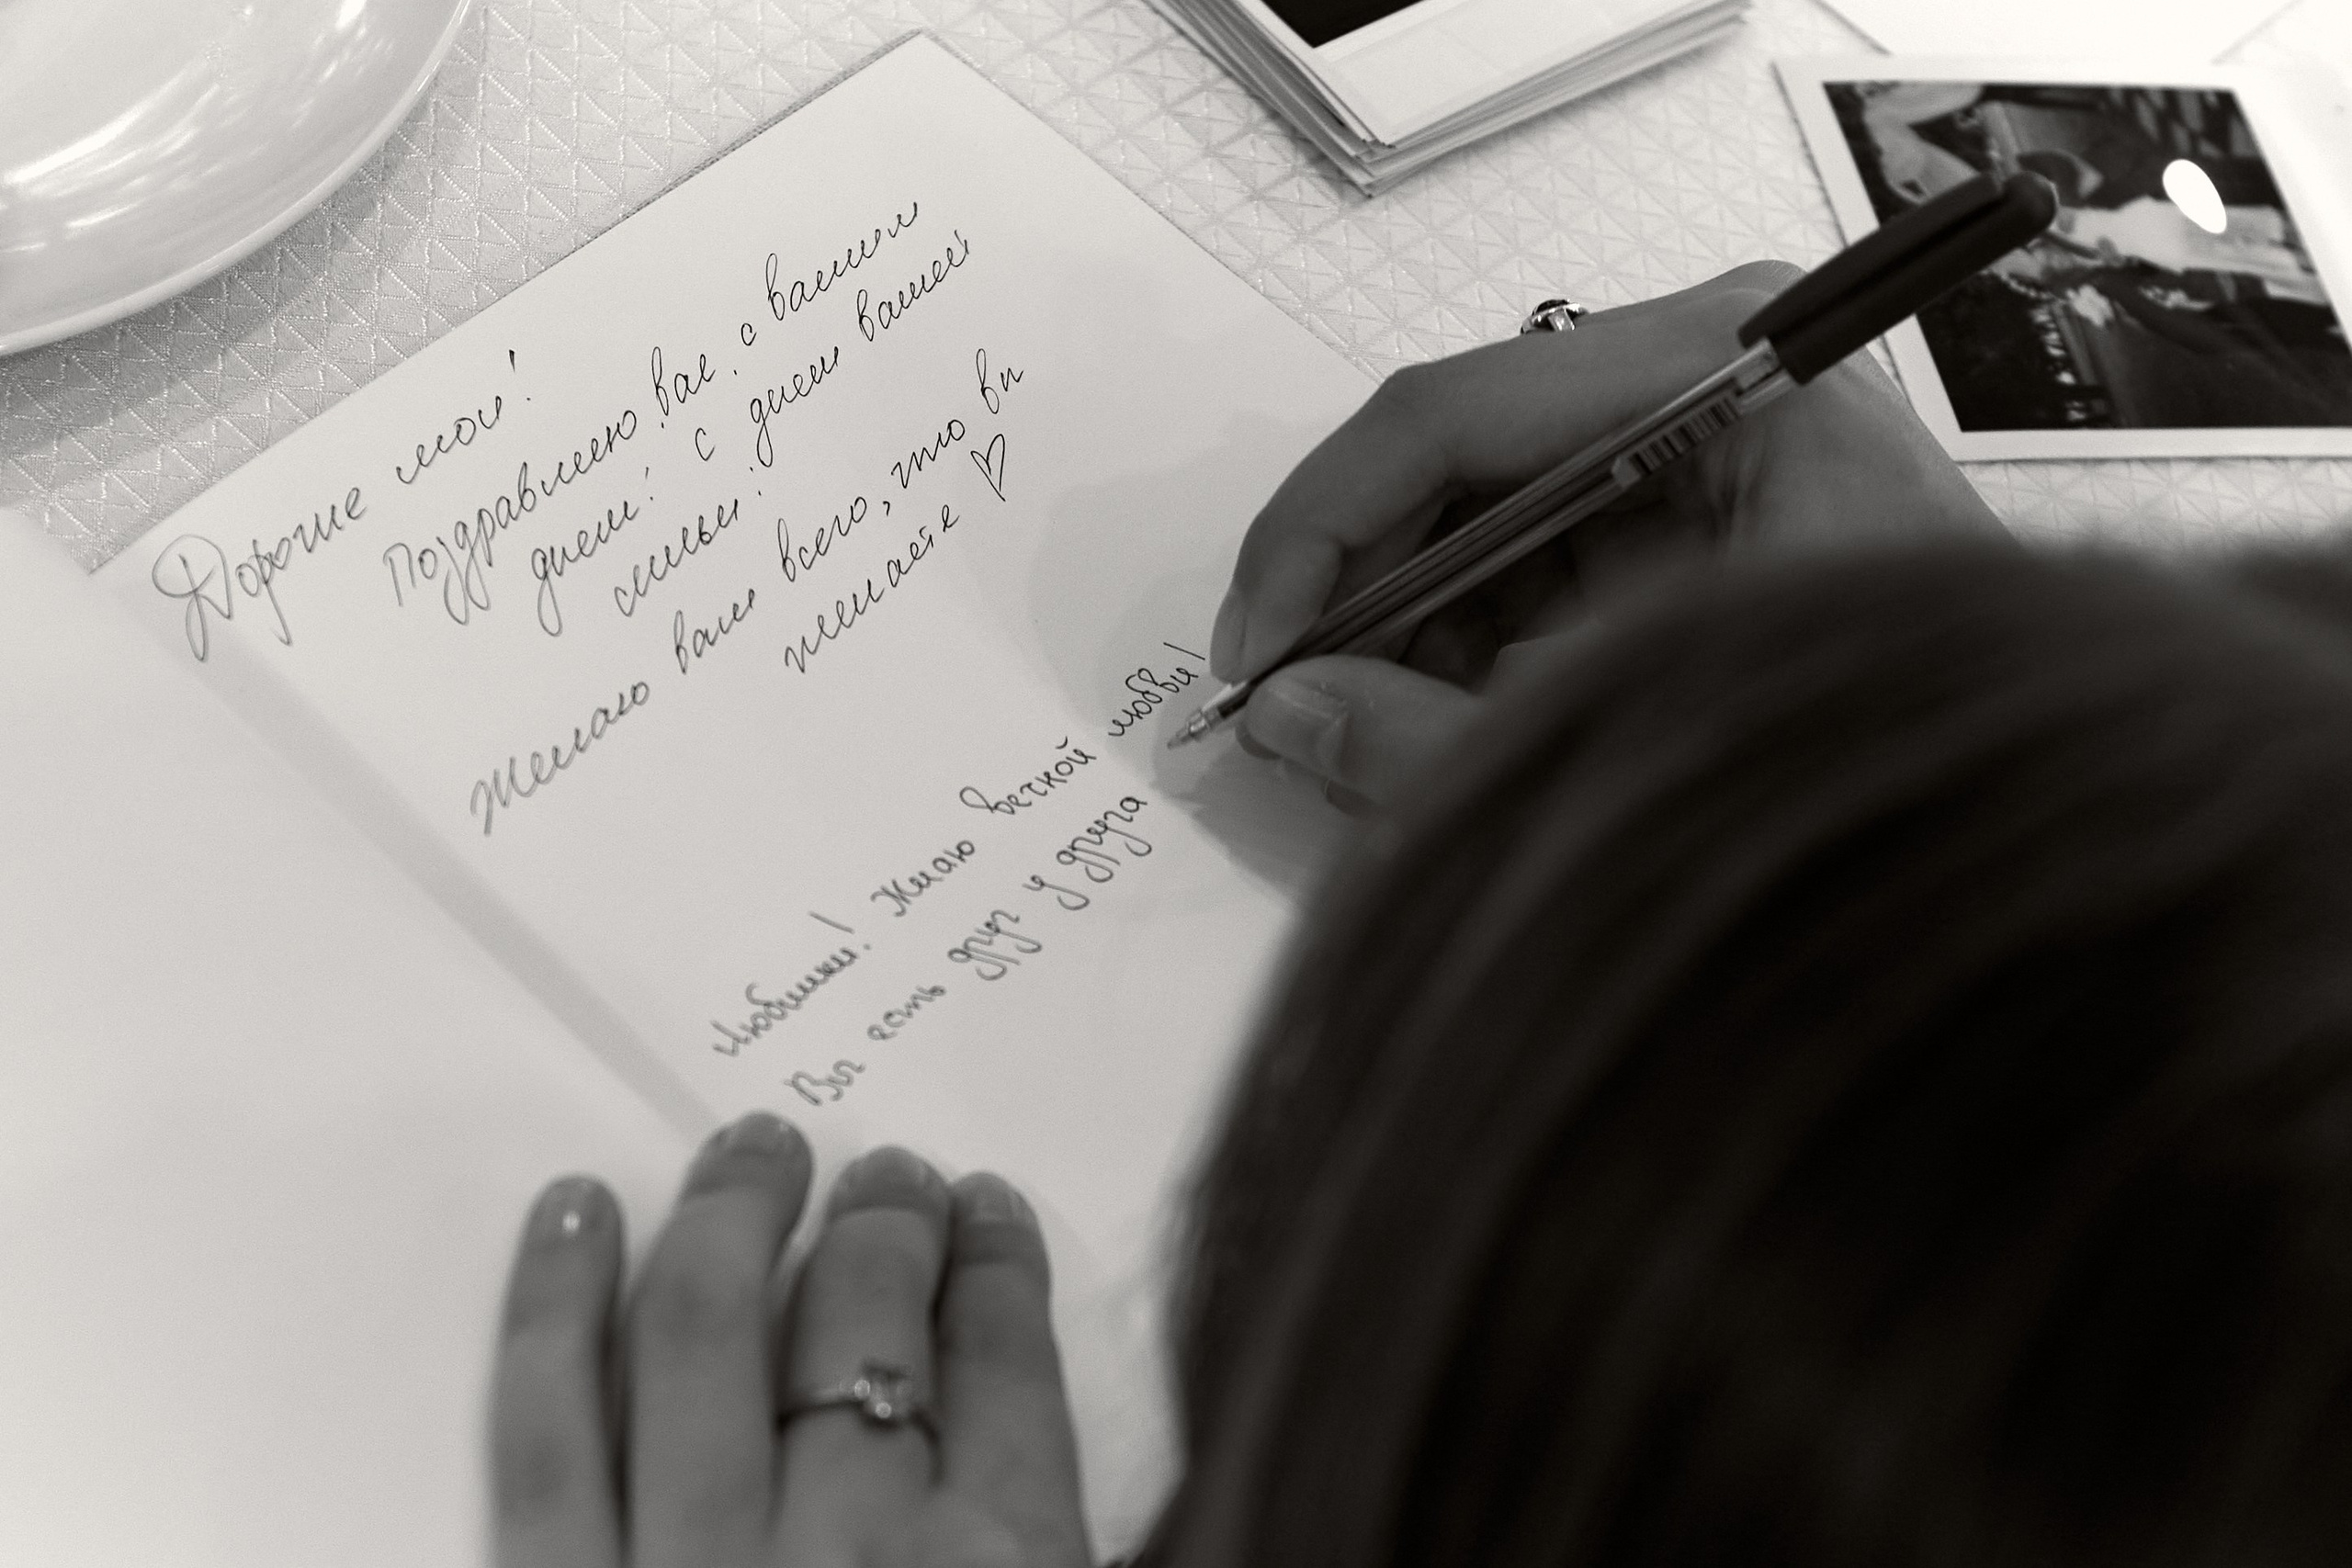 Дорогие мои!
Поздравляю вас с вашим
днем! С днем вашей
семьи!
Желаю вам всего, что вы
желаете ♡
Любашки! Желаю вечной любви!
Вы есть друг у друга